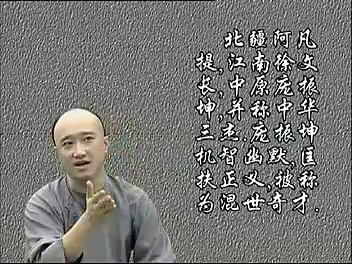 北疆阿凡
提,江南徐文
长,中原庞振
坤,并称中华
三杰.庞振坤
机智幽默,匡
扶正义,被称
为混世奇才.